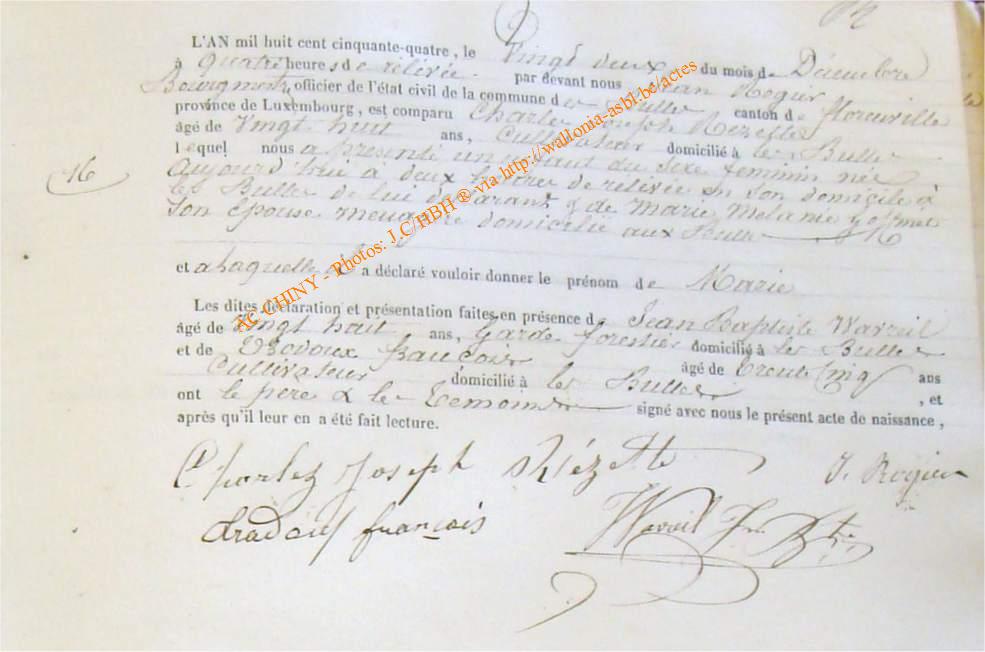 L'AN mil huit cent cinquante-quatre, le Vingt deux du mois de Décembre
à quatre heures de relévée par devant nous Jean Rogier
Bourgmestre officier de l'état civil de la commune de Bulles canton de Florenville
province de Luxembourg, est comparu Charles Joseph Rezette
âgé de Vingt huit ans, Cultivateur domicilié à les Bulles
lequel nous a présenté un enfant du sexe feminin née
16
Aujourd'hui à deux heures de relevée en son domicile à
les Bulles de lui déclarant & de Marie Melanie
Son Epouse menagère domicilié aux Bulles
et a laquelle il a déclaré vouloir donner le prénom de Marie
Les dites déclaration et présentation faites en présence de Jean Baptiste Warzil
âgé de Vingt huit ans, Garde forestier domicilié à les Bulles
et de François âgé de trente Cinq ans
Cultivateur domicilié à les Bulles , et
ont le père & les temoins signé avec nous le présent acte de naissance,
après qu'il leur en a été fait lecture.
Charles Joseph Rézette J. Rogier
françois
xc CHINY - Photos: J.C/HBH ® via http://wallonia-asbl.be/actes